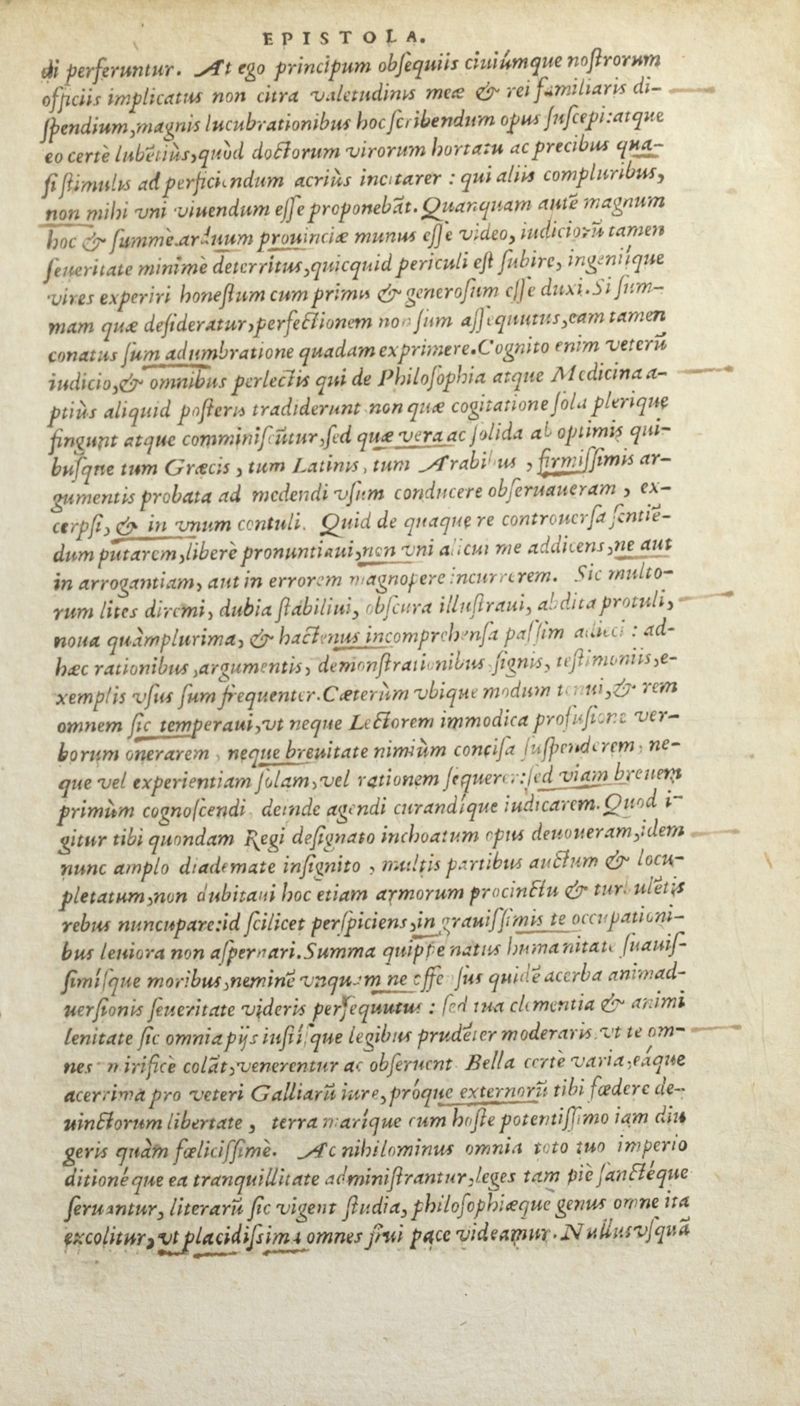 EPISTOLA.
di perferuntur. At ego principum obſequiis ciuiúmque noſtrorum
officiis implicatus non citra valetudinis meæ & rei familiaris di-
ſpendium, magnis lucubrationibus hoc ſcribendum opus ſuſcepi: atque
eo certè lubētiùs, quòd doctorum virorum hortatu ac precibus qua-
ſi ſtimulis ad perficiendum acriùs incitarer : qui aliis compluribus,
non mihi vni viuendum eſſe proponebāt. Quanquam autē magnum
hoc & ſummè arduum prouinciæ munus eſſe video, iudiciorū tamen
ſeueritate minimè deterritus, quicquid periculi eſt ſubire, ingeniique
vires experiri honeſtum cum primis & generoſum eſſe duxi. Si ſum-
mam quæ deſideratur, perfectionem non ſum aſſequutus, eam tamen
conatus ſum adumbratione quadam exprimere. Cognito enim veterū
iudicio, & omnibus perlectis qui de Philoſophia atque Medicina a-
ptiùs aliquid poſteris tradiderunt non quæ cogitatione ſola plerique
fingunt atque comminiſcūtur, ſed quæ vera ac ſolida ab optimis qui-
buſque tum Græcis, tum Latinis, tum Arabibus, firmiſſimis ar-
gumentis probata ad medendi vſum conducere obſeruaueram, ex-
cerpſi, & in vnum contuli. Quid de quaque re controuerſa ſentiē-
dum putarem, liberè pronuntiaui, non vni alicui me addicens, ne aut
in arrogantiam, aut in errorem magnopere incurrerem. Sic multo-
rum lites diremi, dubia ſtabiliui, obſcura illuſtraui, abdita protuli,
noua quàmplurima, & hactenus incomprehenſa paſſim adieci : ad-
hæc rationibus, argumentis, demonſtrationibus ſignis, teſtimoniis, e-
xemplis vſus ſum frequenter. Cæterùm vbique modum tenui, & rem
omnem ſic temperaui, vt neque Lectorem immodica profuſione ver-
borum onerarem, neque breuitate nimiùm conciſa ſuſpenderem, ne-
que vel experientiam ſolam, vel rationem ſequerer: ſed viam breuem
primùm cognoſcendi deinde agendi curandíque iudicarem. Quod i-
gitur tibi quondam Regi deſignato inchoatum opus deuoueram, idem
nunc amplo diademate inſignito, multis partibus auctum & locu-
pletatum, non dubitaui hoc etiam armorum procinctu & turbulētis
rebus nuncupare: id ſcilicet perſpiciens, in grauiſſimis te occupationi-
bus leuiora non aſpernari. Summa quippe natus humanitate ſuauiſ-
ſimíſque moribus, neminē vnquam ne offenſus quidē acerba animad-
uerſionis ſeueritate videris perſequutus : ſed tua clementia & animi
lenitate ſic omnia piis iuſtíſque legibus prudēter moderaris, vt te om-
nes mirificè colāt, venerentur ac obſeruent. Bella certè varia, eáque
acerrima pro veteri Galliarū iure, próque externorū tibi fœdere de-
uinctorum libertate, terra maríque cum hoſte potentiſſimo iam diu
geris quàm fœliciſſimè. Ac nihilominus omnia toto tuo imperio
ditionéque ea tranquillitate adminiſtrantur, leges tam piè ſanctéque
ſeruantur, literarū ſic vigent ſtudia, philoſophiæque genus omne ita
excolitur, vt placidiſsima omnes frui pace videamur. Nullus vſquā